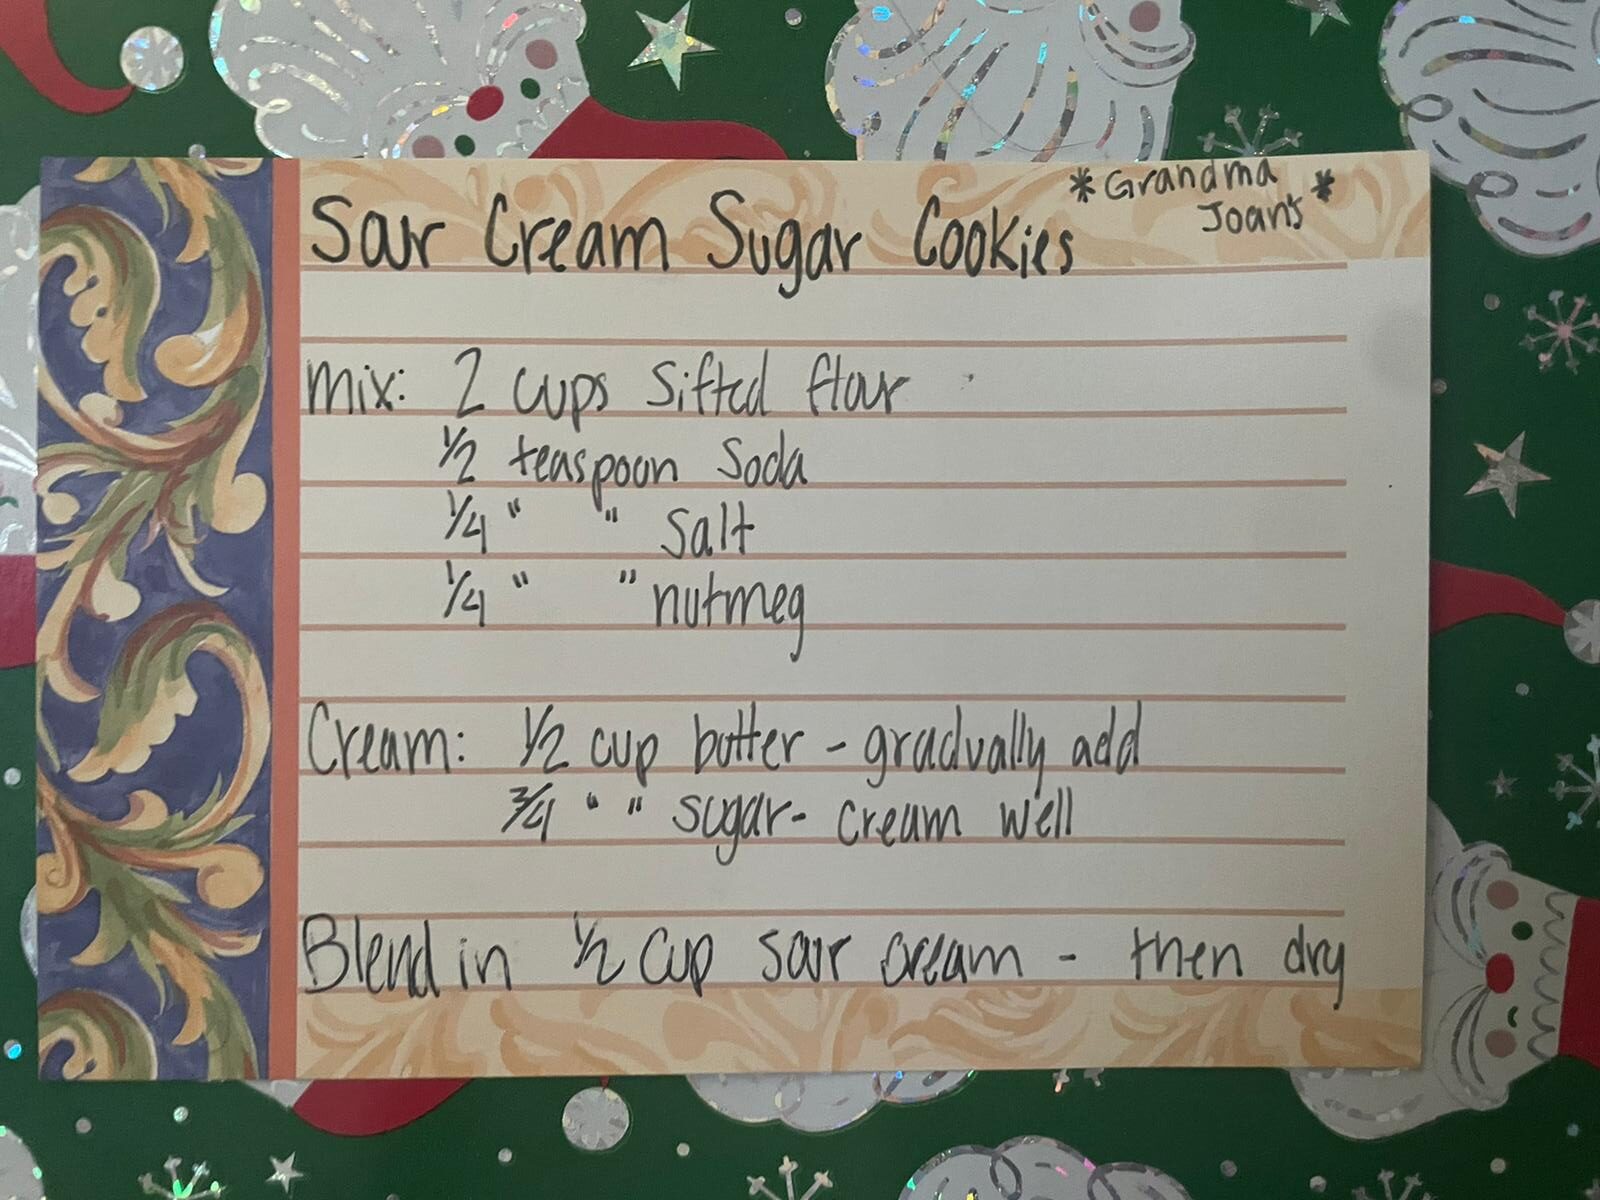 Sour Cream Sugar Cookies
*Grandma Joan's*
Mix: 2 cups Sifted flour
1/2 teaspoon Soda
1/4 " " Salt
1/4 " " nutmeg
Cream: 1/2 cup butter - gradually add
3/4 " " sugar - cream well
Blend in 1/2 cup sour cream - then dry